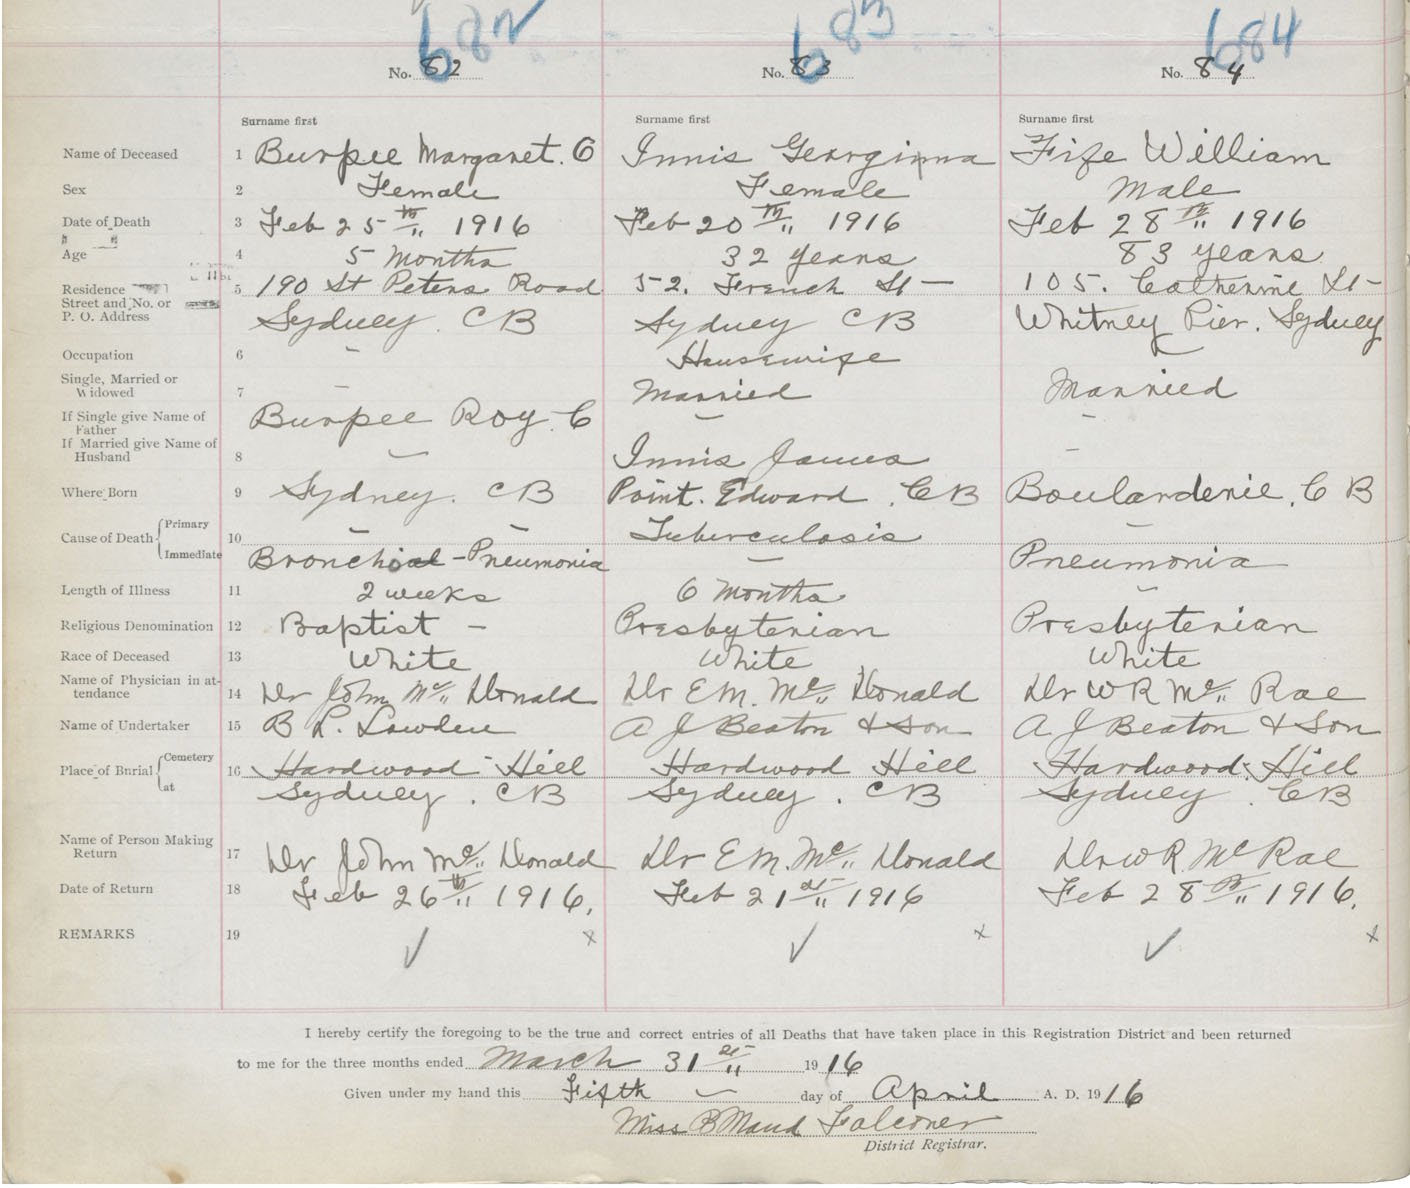 682 683 684
No. 82 No. 83 No. 84
Surname first Surname first Surname first
Name of Deceased 1 Burpee Margaret. C Innis Georginna Fife William
Sex 2 Female Female Male
Date of Death 3 Feb 25th 1916 Feb 20th 1916 Feb 28th 1916
Age 4 5 Months 32 years 83 years
Residence 5 190 St Peters Road 52. French St — 105. Catherine St —
Street and No. or
P. O. Address Sydney. CB Sydney CB Whitney Pier. Sydney
Occupation 6 — Housewife —
Single, Married or
Widowed 7 — Married Married
If Single give Name of
Father Burpee Roy. C — —
If Married give Name of
Husband 8 — Innis James —
Where Born 9 Sydney. CB Point. Edward. CB Boularderie. C B
Cause of Death Primary 10 — — Tuberculosis —
Immediate Bronchial - Pneumonia — Pneumonia
Length of Illness 11 2 weeks 6 Months —
Religious Denomination 12 Baptist — Presbyterian Presbyterian
Race of Deceased 13 White White White
Name of Physician in at-
tendance 14 Dr John Mc Donald Dr E M. Mc Donald Dr W R Mc Rae
Name of Undertaker 15 B L. Lowden A J Beaton & Son A J Beaton & Son
Place of Burial Cemetery 16 Hardwood Hill Hardwood Hill Hardwood Hill
at Sydney. CB Sydney. CB Sydney. CB
Name of Person Making
Return 17 Dr John Mc Donald Dr E M. Mc Donald Dr W R. Mc Rae
Date of Return 18 Feb 26th 1916. Feb 21st 1916 Feb 28th 1916.
REMARKS 19 ✓ x ✓ x ✓ x
I hereby certify the foregoing to be the true and correct entries of all Deaths that have taken place in this Registration District and been returned
to me for the three months ended March 31st 1916
Given under my hand this Fifth — day of April A. D. 1916
Miss B Maud Falconer
District Registrar.